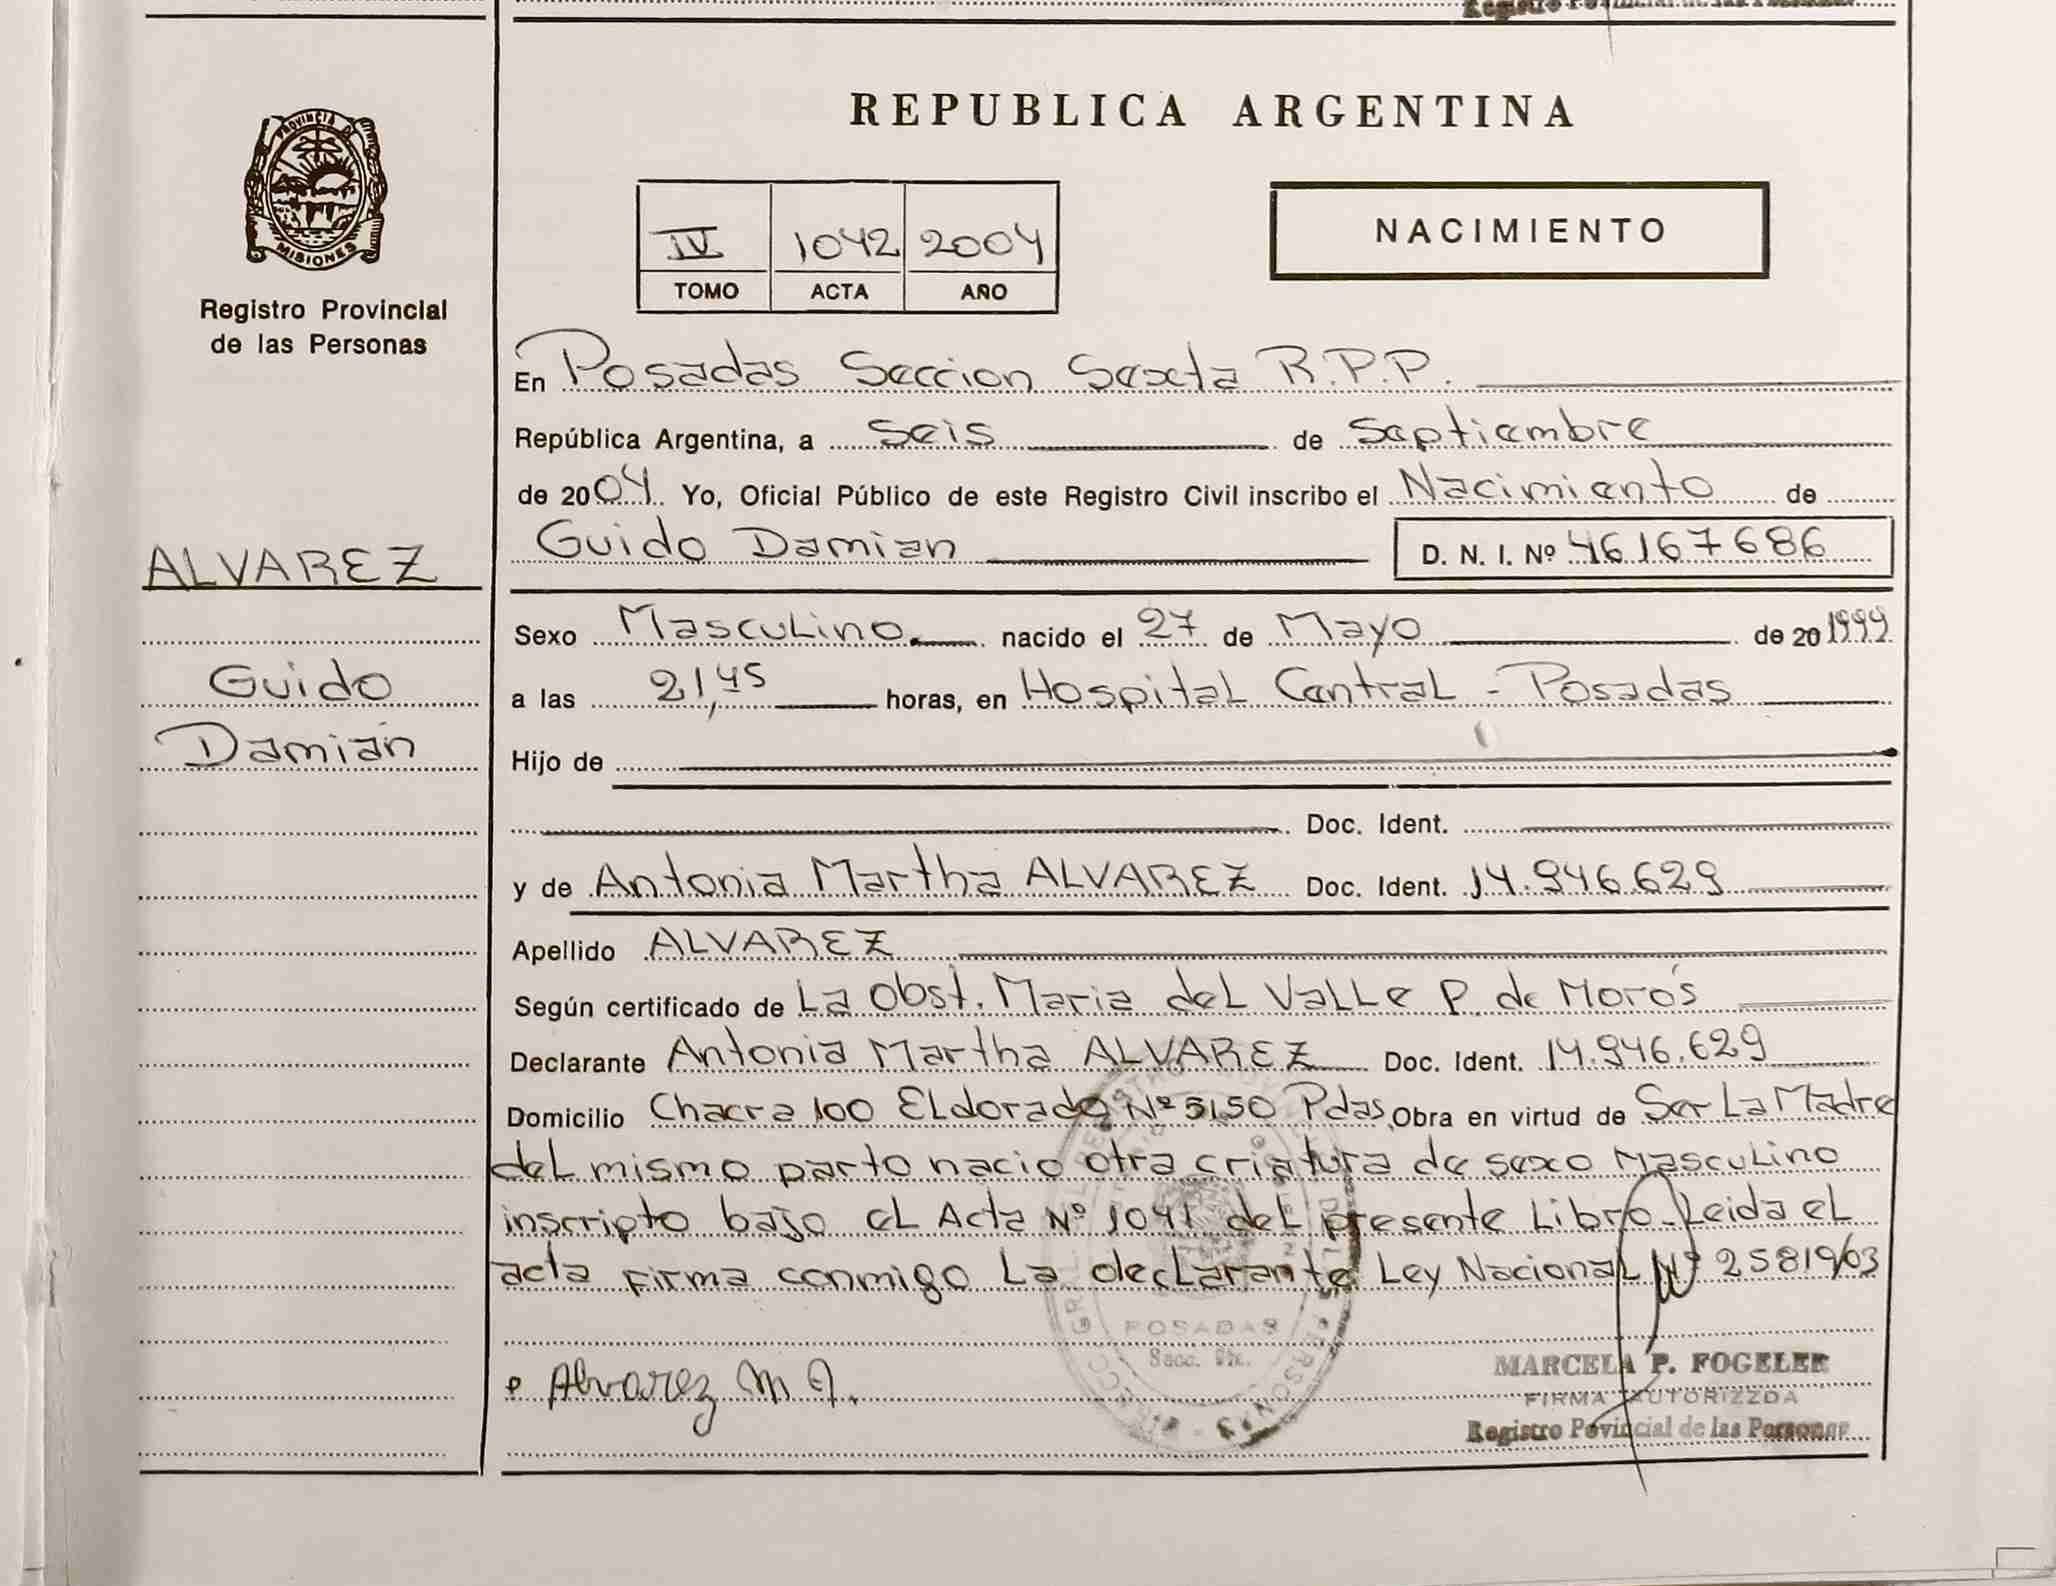 Registro Provincial de las Personas
PROVINCIA DE
MISIONES
Registro Provincial
de las Personas
ALVAREZ
Guido
Damián
REPUBLICA ARGENTINA
IV 1042 2004
TOMO ACTA AÑO
NACIMIENTO
En Posadas Seccion Sexta R.P.P.
República Argentina, a seis de septiembre
de 2004 Yo, Oficial Público de este Registro Civil inscribo el Nacimiento de
Guido Damian D. N. I. Nº 46167686
Sexo Masculino nacido el 27 de Mayo de 20 1999
a las 21,45 horas, en Hospital Central - Posadas
Hijo de
Doc. Ident.
y de Antonia Martha ALVAREZ Doc. Ident. 14.946.629
Apellido ALVAREZ
Según certificado de La Obst. Maria del Valle P. de Morós
Declarante Antonia Martha ALVAREZ Doc. Ident. 14.946.629
Domicilio Chacra 100 Eldorado Nº 5150 Pdas. Obra en virtud de Ser La Madre
del mismo parto nacio otra criatura de sexo Masculino
inscripto bajo el Acta Nº 1041 del presente Libro. Leida el
acta firma conmigo La declarante Ley Nacional Nº 25819/03
POSADAS
Secc.
Alvarez M A.
MARCELA P. FOGELER
FIRMA AUTORIZZDA
Registro Povincial de las Personas